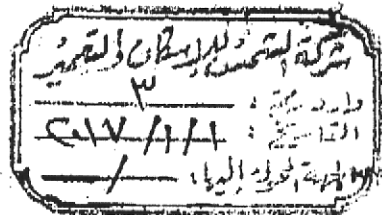 شركة الشمس للإسكان والتعمير
وارد رقم : ٣
التاريخ : ٢٠١٧/١/١
الجهة المحول إليها : /